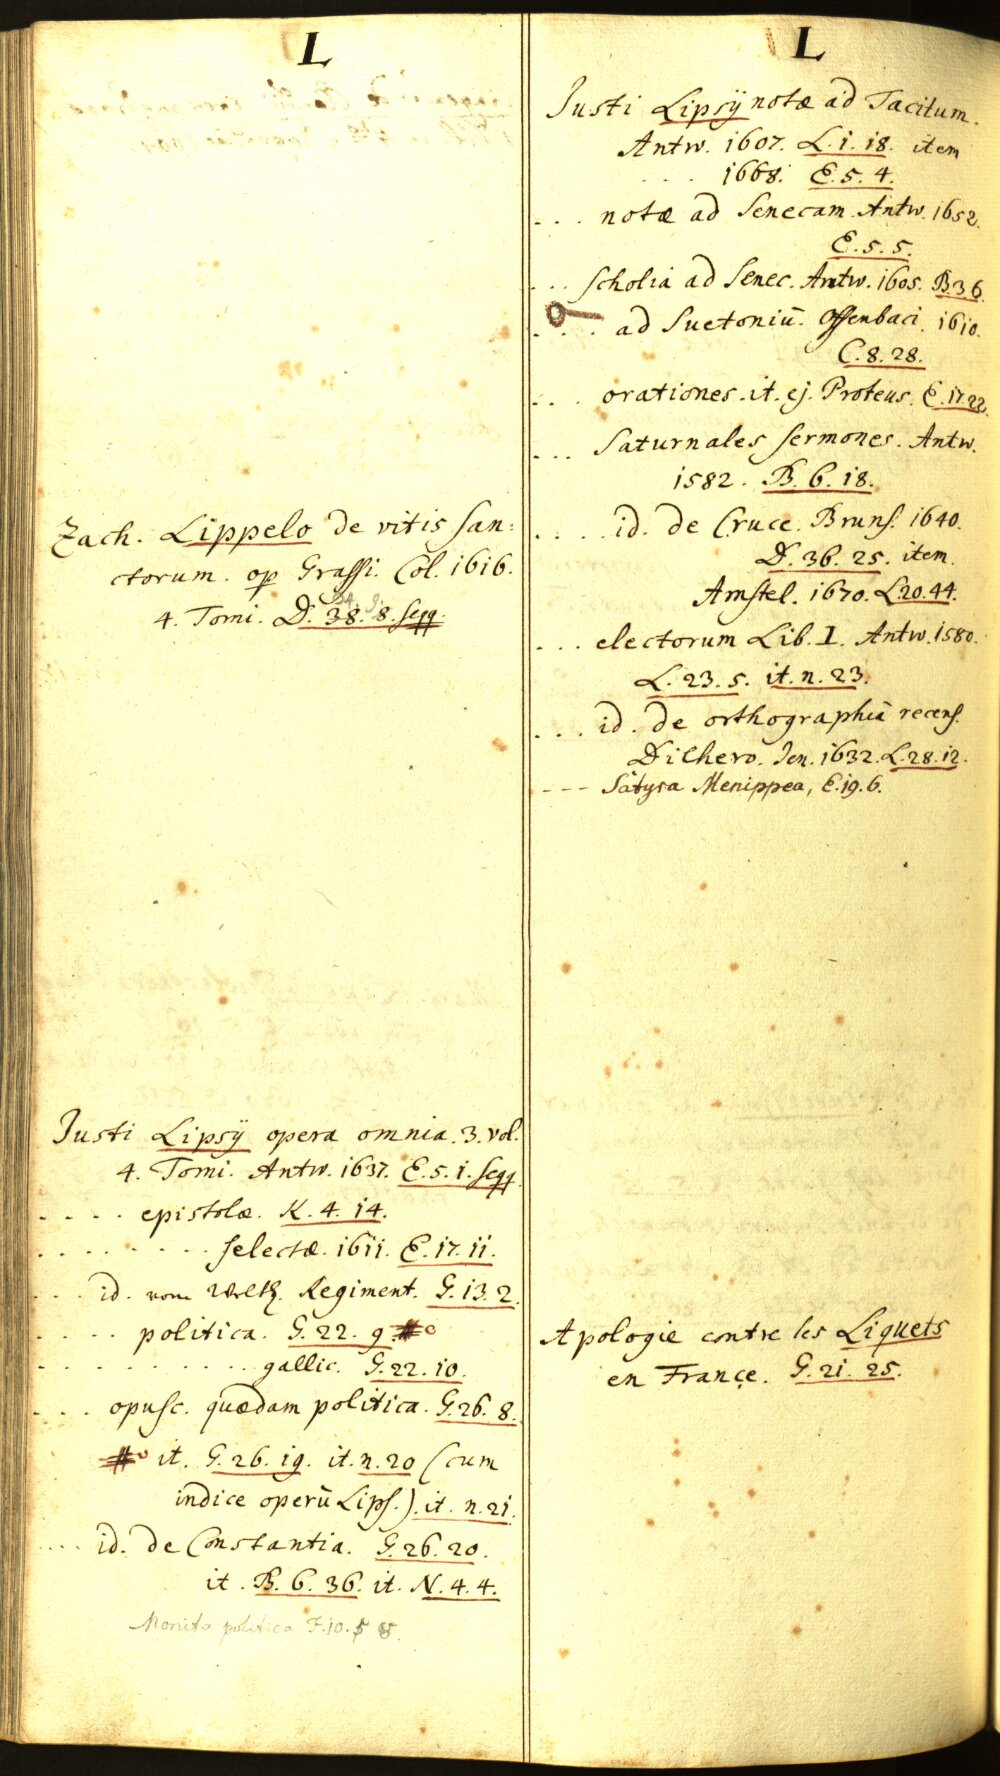 L
Zach. Lippelo de vitis San=
ctorum. op Grassi. Col. 1616.
4. Tomi. D. 38. 8. seqq.
Justi Lipsÿ opera omnia. 3. vol.
4. Tomi. Antw. 1637. E. 5. 1. seqq.
. . . . epistolæ. K. 4. 14.
. . . . . . . . selectæ. 1611. E. 17. 11.
. . . id. vom Weltl. Regiment. G. 13. 2.
. . . . politica. G. 22. 9. #
. . . . . . . . . . . gallic. G. 22. 10.
. . . . opusc. quædam politica. G. 26. 8.
# it. G. 26. 19. it. n. 20 (cum
indice operū Lips.). it. n. 21.
. . . . id. de Constantia. G. 26. 20.
it. B. 6. 36. it. N. 4. 4.
Monita politica F. 10. 5
L
Justi Lipsÿ notæ ad Tacitum.
Antw. 1607. L. 1. 18. item
. . . 1668. E. 5. 4.
. . . notæ ad Senecam. Antw. 1652.
E. 5. 5.
. . . Scholia ad Senec. Antw. 1605. B. 3 6.
. . . . ad Suetoniū. Offenbaci. 1610.
C. 8. 28.
. . . orationes. it. ej. Proteus. E. 17. 22.
. . . Saturnales sermones. Antw.
1582. B. 6. 18.
. . . . id. de Cruce. Bruns. 1640.
D. 36. 25. item.
Amstel. 1670. L. 20. 44.
. . . electorum Lib. I. Antw. 1580.
L. 23. 5. it. n. 23.
. . . id. de orthographiā recens.
Dilhero. Jen. 1632. L. 28. 12.
- - - Satyra Menippea, E. 19. 6.
Apologie contre les Liquets
en France. G. 21. 25.